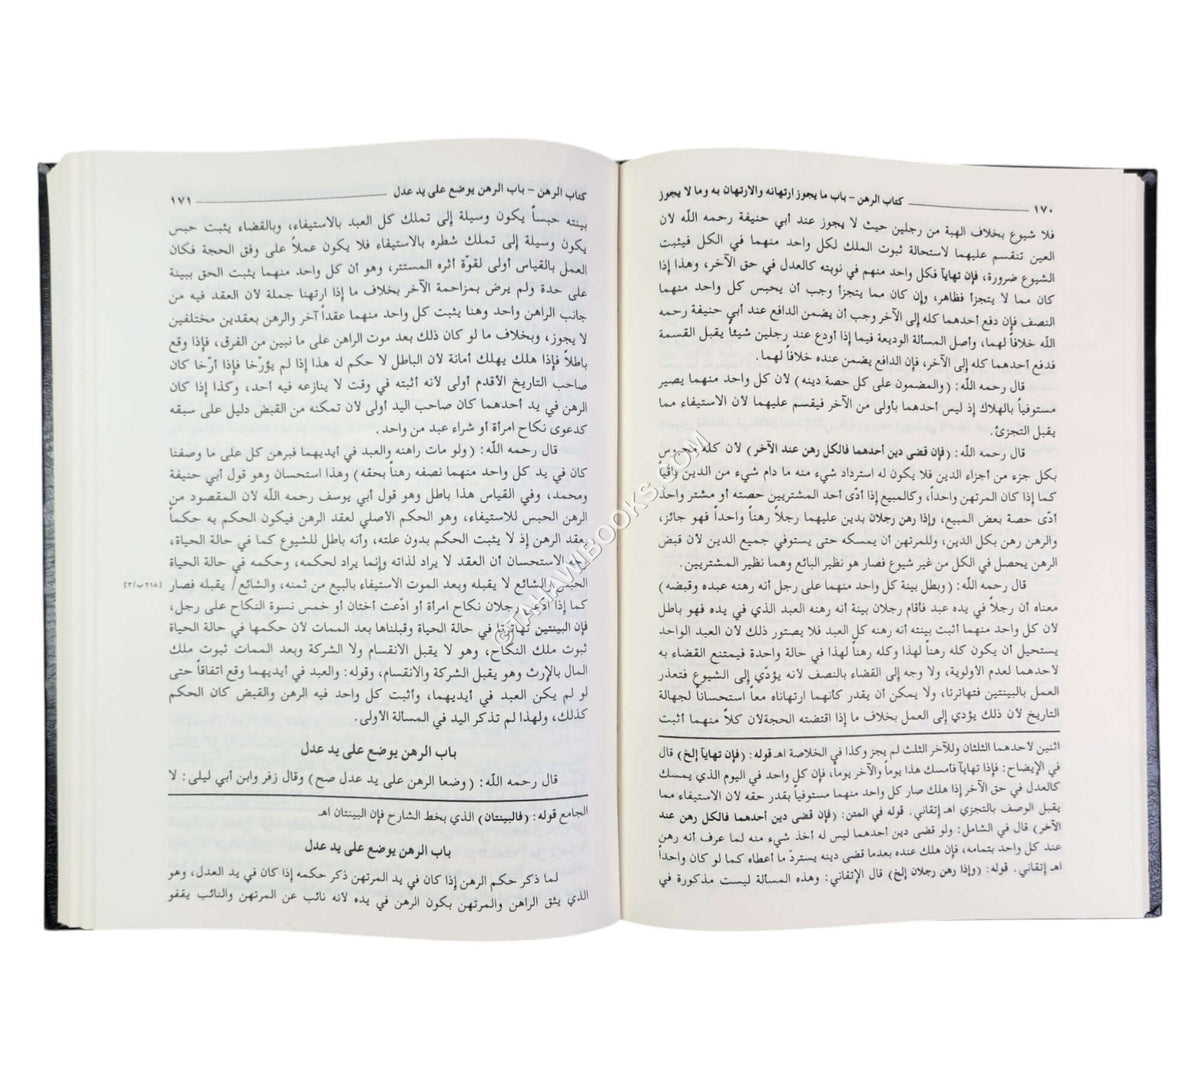 ١٧٠ كتاب الرهن - باب ما يجوز ارتهانه والارتهان به وما لا يجوز
فلا شيوع بخلاف الهبة من رجلين حيث لا يجوز عند أبي حنيفة رحمه الله لأن
العين تنقسم عليهما لاستحالة ثبوت الملك لكل واحد منهما في الكل فيثبت
الشيوع ضرورة، فإن تهايآ فكل واحد منهم في نوبته كالعدل في حق الآخر، وهذا إذا
كان مما لا يتجزأ فظاهر، وإن كان مما يتجزأ وجب أن يحبس كل واحد منهما
النصف فإن دفع أحدهما كله إلى الآخر وجب أن يضمن الدافع عند أبي حنيفة رحمه
الله خلافاً لهما، وأصل المسألة الوديعة فيما إذا أودع عند رجلين شيئاً يقبل القسمة
فدفع أحدهما كله إلى الآخر، فإن الدافع يضمن عنده خلافاً لهما.
قال رحمه الله: (والمضمون على كل حصة دينه) لأن كل واحد منهما يصير
مستوفياً بالهلاك إذ ليس أحدهما بأولى من الآخر فيقسم عليهما لأن الاستيفاء مما
يقبل التجزئ.
قال رحمه الله: (فإن قضى دين أحدهما فالكل رهن عند الآخر) لأن كله محبوس
بكل جزء من أجزاء الدين فلا يكون له استرداد شيء منه ما دام شيء من الدين باقياً
كما إذا كان المرتهن واحداً، وكالمبيع إذا أدّى أحد المشتريين حصته أو مشتر واحد
أدّى حصة بعض المبيع، وإذا رهن رجلان بدين عليهما رجلاً رهناً واحداً فهو جائز،
والرهن رهن بكل الدين، وللمرتهن أن يمسكه حتى يستوفي جميع الدين لأن قبض
الرهن يحصل في الكل من غير شيوع فصار هو نظير البائع وهما نظير المشتريين.
قال رحمه الله: (وبطل بينة كل واحد منهما على رجل أنه رهنه عبده وقبضه)
معناه أن رجلاً في يده عبد فأقام رجلان بينة أنه رهنه العبد الذي في يده فهو باطل
لأن كل واحد منهما أثبت بينته أنه رهنه كل العبد فلا يصتور ذلك لأن العبد الواحد
يستحيل أن يكون كله رهناً لهذا وكله رهناً لهذا في حالة واحدة فيمتنع القضاء به
لأحدهما لعدم الأولوية، ولا وجه إلى القضاء بالنصف لأنه يؤدّي إلى الشيوع فتعذر
العمل بالبينتين فتهاترتا، ولا يمكن أن يقدر كأنهما ارتهناه معاً استحساناً لجهالة
التاريخ لأن ذلك يؤدي إلى العمل بخلاف ما إذا اقتضته الحجة لأن كلاً منهما أثبت
اثنين لأحدهما الثلثان وللآخر الثلث لم يجز وكذا في الخلاصة اهـ قوله: (فإن تهايآ إلخ) قال
في الإيضاح: فإذا تهايآ فأمسك هذا يوماً والآخر يوماً، فإن كل واحد في اليوم الذي يمسك
كالعدل في حق الآخر إذا هلك صار كل واحد منهما مستوفياً بقدر حقه لأن الاستيفاء مما
يقبل الوصف بالتجزي اهـ إتقاني. قوله في المتن: (فإن قضى دين أحدهما فالكل رهن عند
الآخر) قال في الشامل: ولو قضى دين أحدهما ليس له أخذ شيء منه لما عرف أنه رهن
عند كل واحد بتمامه، فإن هلك عنده بعدما قضى دينه يستردّ ما أعطاه كما لو كان واحداً
اهـ إتقاني. قوله: (وإذا رهن رجلان إلخ) قال الإتقاني: وهذه المسألة ليست مذكورة في
كتاب الرهن - باب الرهن يوضع على يد عدل ١٧١
بينته حبساً يكون وسيلة إلى تملك كل العبد بالاستيفاء، وبالقضاء يثبت حبس
يكون وسيلة إلى تملك شطره بالاستيفاء فلا يكون عملاً على وفق الحجة فكان
العمل بالقياس أولى لقوّة أثره المستتر، وهو أن كل واحد منهما يثبت الحق ببينة
على حدة ولم يرض بمزاحمة الآخر بخلاف ما إذا ارتهنا جملة لأن العقد فيه من
جانب الراهن واحد وهنا يثبت كل واحد منهما عقداً آخر والرهن بعقدين مختلفين
لا يجوز، وبخلاف ما لو كان ذلك بعد موت الراهن على ما نبين من الفرق، فإذا وقع
باطلاً فإذا هلك يهلك أمانة لأن الباطل لا حكم له هذا إذا لم يؤرّخا فإذا أرّخا كان
صاحب التاريخ الأقدم أولى لأنه أثبته في وقت لا ينازعه فيه أحد، وكذا إذا كان
الرهن في يد أحدهما كان صاحب اليد أولى لأن تمكنه من القبض دليل على سبقه
كدعوى نكاح امرأة أو شراء عبد من واحد.
قال رحمه الله: (ولو مات راهنه والعبد في أيديهما فبرهن كل على ما وصفنا
كان في يد كل واحد منهما نصفه رهناً بحقه) وهذا استحسان وهو قول أبي حنيفة
ومحمد، وفي القياس هذا باطل وهو قول أبي يوسف رحمه الله لأن المقصود من
الرهن الحبس للاستيفاء، وهو الحكم الأصلي لعقد الرهن فيكون الحكم به حكماً
بعقد الرهن إذ لا يثبت الحكم بدون علته، وأنه باطل للشيوع كما في حالة الحياة،
وجه الاستحسان أن العقد لا يراد لذاته وإنما يراد لحكمه، وحكمه في حالة الحياة
الحبس والشائع لا يقبله وبعد الموت الاستيفاء بالبيع من ثمنه، والشائع/ يقبله فصار [٢١٨ب/٣]
كما إذا ادّعى رجلان نكاح امرأة أو ادّعت أختان أو خمس نسوة النكاح على رجل،
فإن البينتين تهاترتا في حالة الحياة وقبلناها بعد الممات لأن حكمها في حالة الحياة
ثبوت ملك النكاح، وهو لا يقبل الانقسام ولا الشركة وبعد الممات ثبوت ملك
المال بالإرث وهو يقبل الشركة والانقسام، وقوله: والعبد في أيديهما وقع اتفاقاً حتى
لو لم يكن العبد في أيديهما، وأثبت كل واحد فيه الرهن والقبض كان الحكم
كذلك، ولهذا لم تذكر اليد في المسألة الأولى.
باب الرهن يوضع على يد عدل
قال رحمه الله: (وضعا الرهن على يد عدل صح) وقال زفر وابن أبي ليلى: لا
الجامع قوله: (فالبينتان) الذي بخط الشارح فإن البينتان اهـ
باب الرهن يوضع على يد عدل
لما ذكر حكم الرهن إذا كان في يد المرتهن ذكر حكمه إذا كان في يد العدل، وهو
الذي يثق الراهن والمرتهن بكون الرهن في يده لأنه نائب عن المرتهن والنائب يقفو
©TAHAWIBOOKS.COM